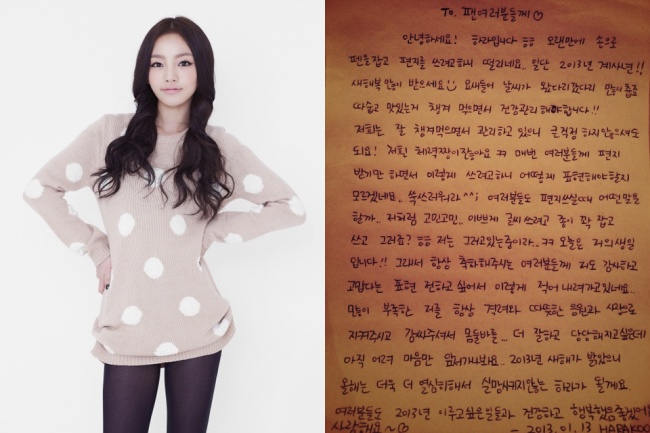 To. 팬여러분들께♡
안녕하세요! 하라입니다 ㅎㅎ 오랜만에 손으로
펜을잡고 편지를 쓰려고하니 떨리네요. 일단 2013년 계사년!!
새해복 많이 받으세요! 요새들어 날씨가 왔다리갔다리 많이 춥죠
따습고 맛있는거 챙겨 먹으면서 건강관리해야합니다!!
저희는 잘 챙겨먹으면서 관리하고 있으니 큰걱정 하지않으셔도
되요! 저흰 체력짱이잖아요 ㅋㅋ 매번 여러분들께 편지
받기만 하면서 이렇게 쓰려고하니 어떻게 표현해야할지
모르겠네요.. 쑥쓰러워라^^; 여러분들도 편지쓰실때 어떤말을
할까.. 저처럼 고민고민.. 이쁘게 글씨 쓰려고 종이 꽉 잡고
쓰고 그러죠? ㅎㅎ 저는 그러고있는중이라.. ㅋㅋ 오늘은 저의생일
입니다!! 그래서 항상 축하해주시는 여러분들께 저도 감사하고
고맙다는 표현 전하고 싶어서 이렇게 적어 내려가고있네요..
많이 부족한 저를 항상 격려와 따뜻한 응원과 사랑으로
지켜주시고 감싸주셔서 몸둘바를.. 더 잘하고 당당해지고싶은데
아직 어려 마음만 앞서가나봐요.. 2013년 새해가 밝았으니
올해는 더욱 더 열심히해서 실망시키지않는 하라가 될게요.
여러분들도 2013년 이루고싶은일들과 건강하고 행복했음좋겠어
사랑해요~♡ - 2013. 01. 13 HARAKOO